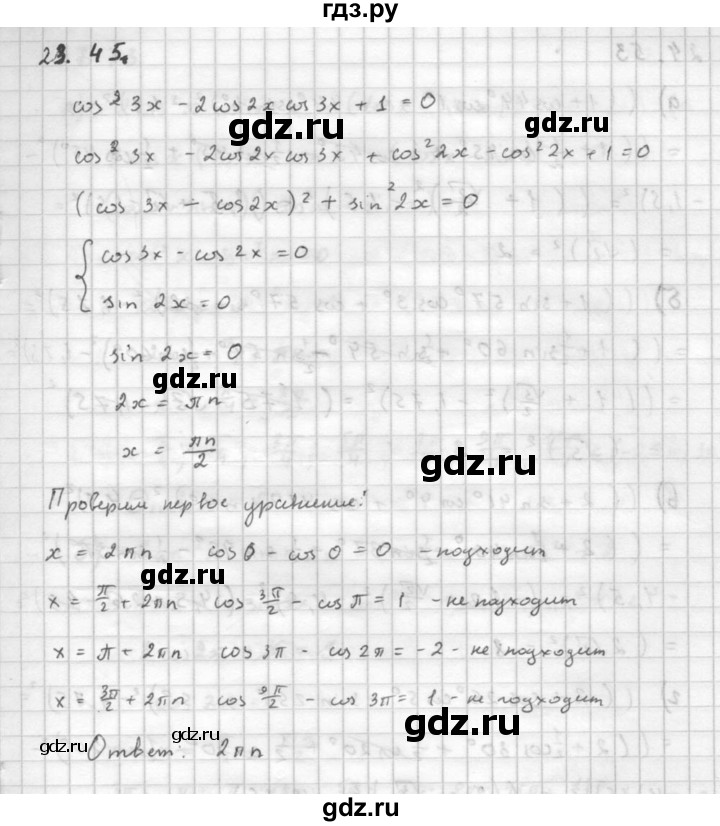 гдз.ру
23. 45.
cos² 3x - 2cos2x cos3x + 1 = 0
gdz.ru
gdz.ru
cos² 3x - 2cos2x cos3x + cos² 2x - cos² 2x + 1 = 0
(cos 3x - cos2x)² + sin² 2x = 0
{ cos3x - cos 2x = 0
sin 2x = 0
gdz.ru
sin 2x = 0
gdz.ru
2x = πn
x = πn/2
gdz.ru
Проверим первое уравнение:
x = 2πn cos0 - cos0 = 0 - подходит
gdz.ru
x = π/2 + 2πn cos 3π/2 - cos π = 1 - не подходит
x = π + 2πn cos 3π - cos 2π = -2 - не подходит
x = 3π/2 + 2πn cos 9π/2 - cos 3π = 1 - не подходит
gdz.ru
gdz.ru
Ответ: 2πn
gdz.ru
gdz.ru